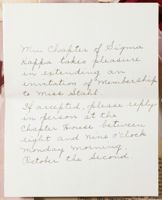 Mu Chapter of Sigma
Kappa takes pleasure
in extending an
invitation of Membership
to Miss Stahl.
If accepted, please reply
in person at the
Chapter House between
eight and nine o'clock
Monday morning,
October the Second.